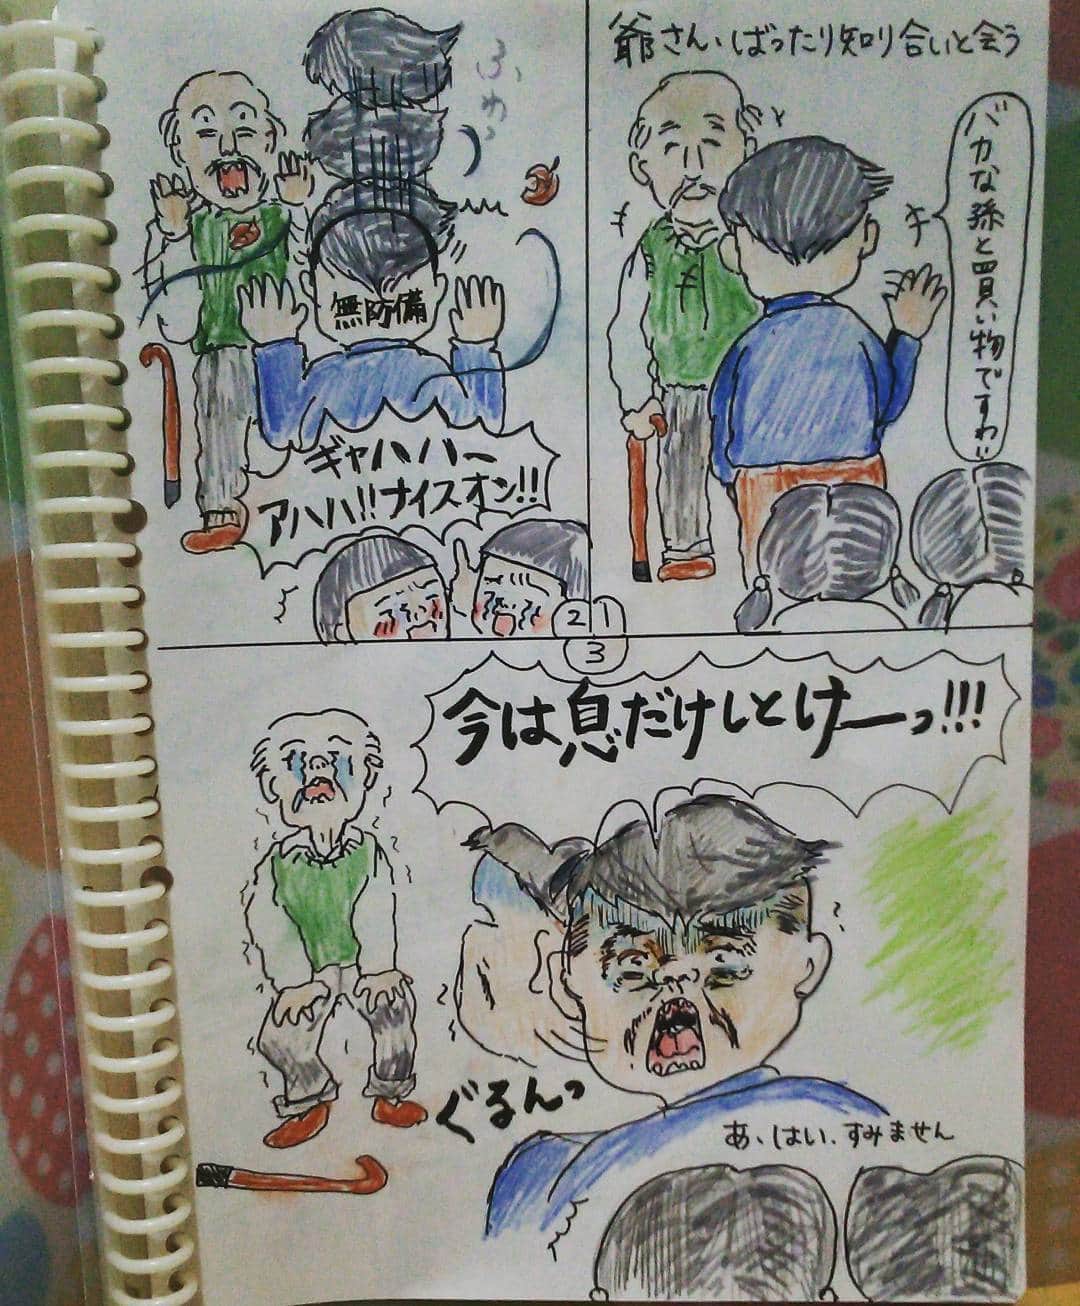 爺さん、ばったり知り合いと会う
バカな孫と買い物ですわい
ふわっ
無防備
ギャハハー
アハハ!!ナイスオン!!
1
2
3
今は息だけしとけーっ!!!
ぐるんっ
あ、はい、すみません